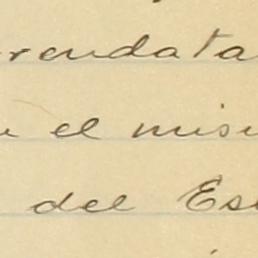 rendata
el misi
del Es